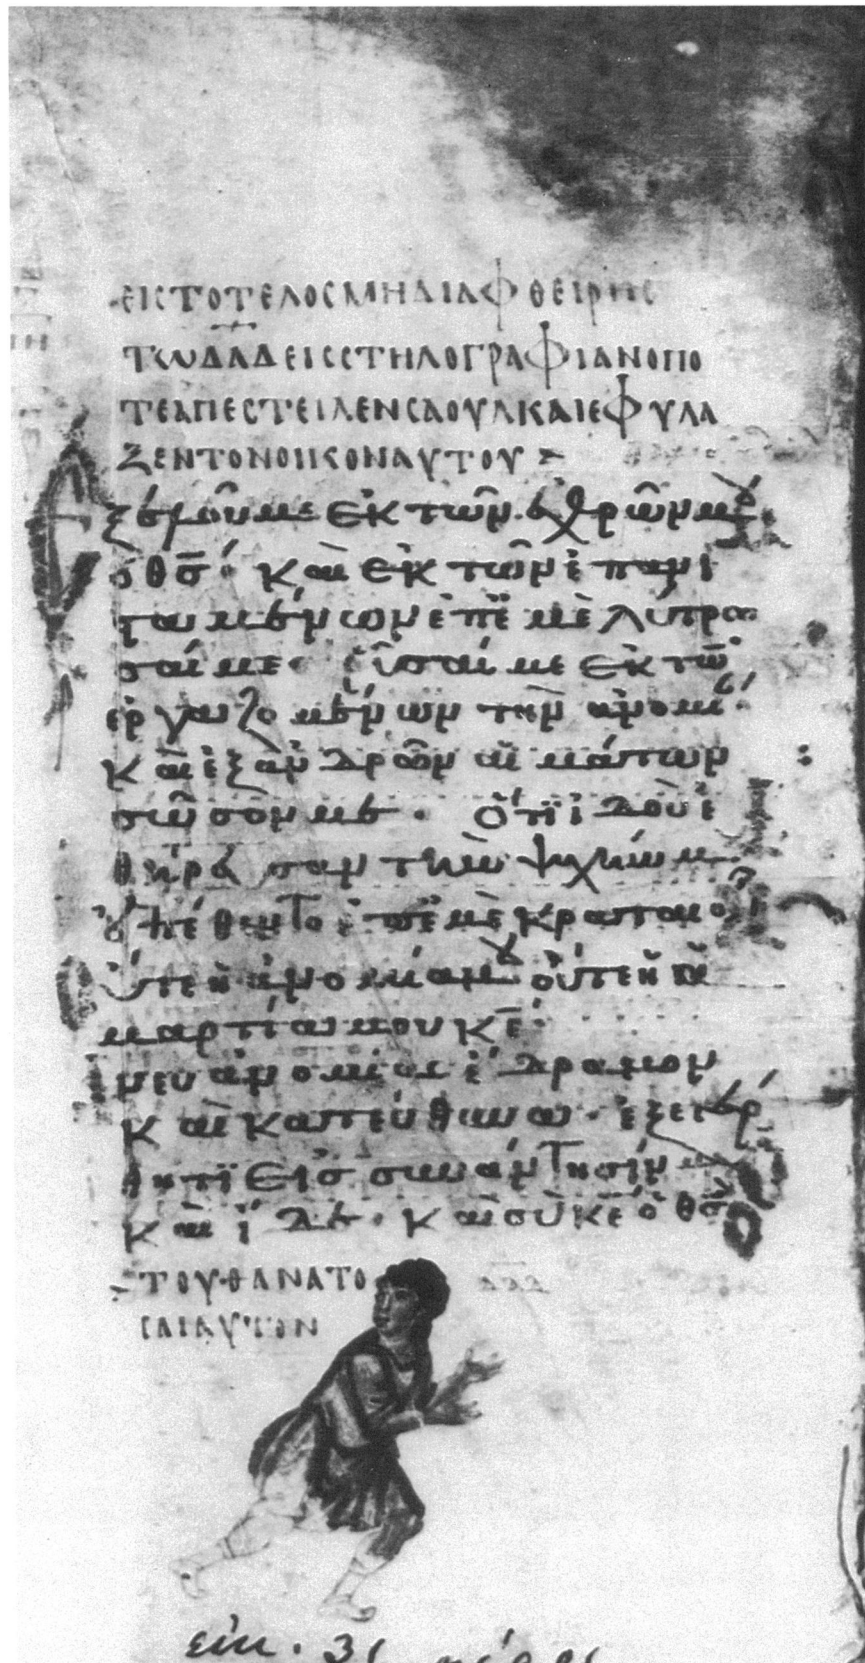 ΕΙΣ ΤΟ ΤΕΛΟΣ ΜΗ ΔΙΑΦΘΕΙΡΗΣ
ΤΩ ΔΑΔ ΕΙΣ ΣΤΗΛΟΓΡΑΦΙΑΝ ΟΠΟ
ΤΕ ΑΠΕΣΤΕΙΛΕΝ ΣΑΟΥΛ ΚΑΙ ΕΦΥΛΑ
ΞΕΝ ΤΟΝ ΟΙΚΟΝ ΑΥΤΟΥ
Ἐξελοῦ με ἐκ τῶν ἐχθρῶν μου
ὁ θς· καὶ ἐκ τῶν ἐπανι
σταμένων ἐπ' ἐμὲ λύτρω
σαί με· ῥῦσαί με ἐκ τῶν
ἐργαζομένων τὴν ἀνομί
καὶ ἐξ ἀνδρῶν αἱμάτων
σῶσόν με· ὅτι ἰδοὺ ἐ
θήρασαν τὴν ψυχήν μου
ἐπέθεντο ἐπ' ἐμὲ κραταιοί
οὔτε ἡ ἀνομία μου οὔτε ἡ ἁ
μαρτία μου κε·
ἄνευ ἀνομίας ἔδραμον
καὶ κατεύθυνα· ἐξεγέρ
θητι εἰς συνάντησίν μου
καὶ ἴδε· καὶ σὺ κε ὁ θς
ΤΟΥ ΘΑΝΑΤΟ
ΣΑΙ ΑΥΤΟΝ
ΔΑΔ